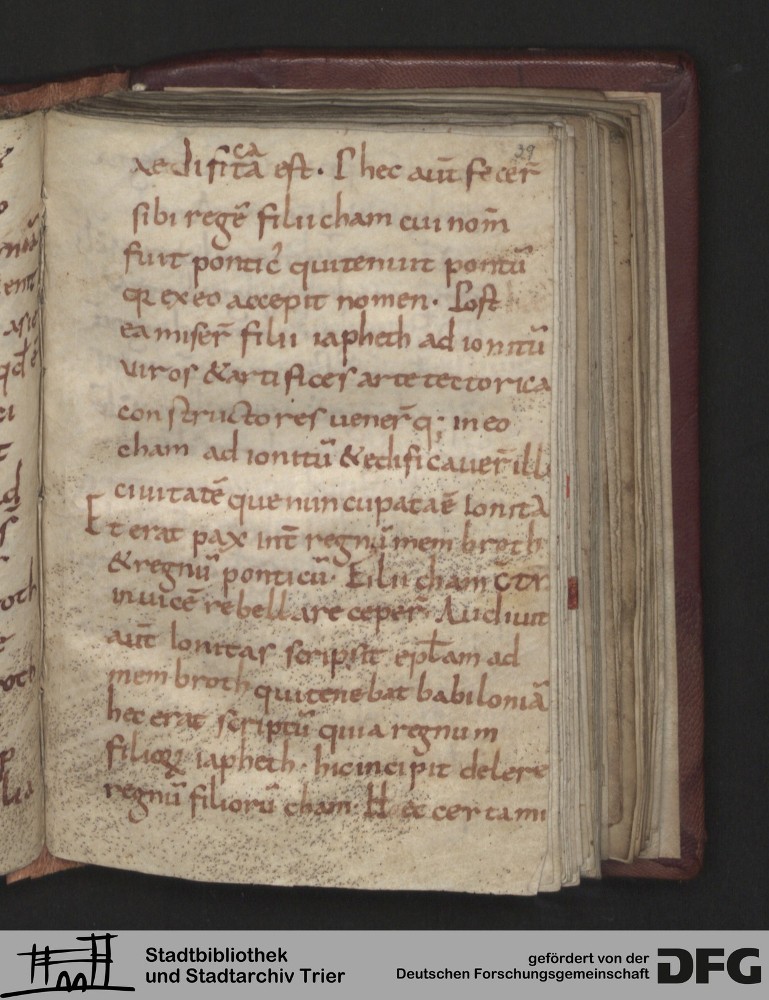 29
aedificata est. Phec aut̄ fecer̄
sibi regē filii cham cui nom̄
fuit pontic᷒ qui tenuit pontū
q̄ ex eo accepit nomen. Post
ea miser̄ filii iapheth ad ionitū
viros & artifices arte tectorica
constructores uener̄q; in eo
cham ad ionitū & edificauer̄ ill
ciuitatē que nuncupata ē Ionita
Et erat pax int̄ regnū membroth
& regnū ponticū. Filii cham c̄tr̄
inuicē rebellare ceper̄. Audiuit
aut̄ Ionitas scripsit ep̄lam ad
membroth qui tenebat babiloniā
hec erat scriptū quia regnum
filioꝝ iapheth. hic incipit delere
regnū filiorū cham. Hęc certami
Stadtbibliothek
und Stadtarchiv Trier
gefördert von der
Deutschen Forschungsgemeinschaft
DFG